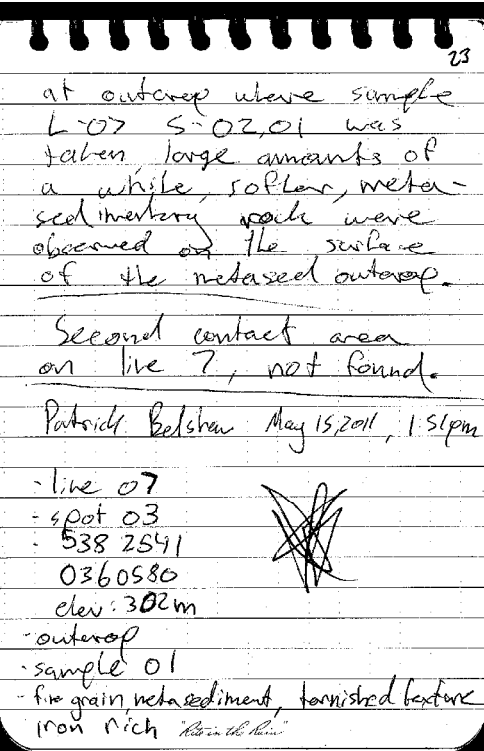 23
at outcrop where sample
L-07 S-02,01 was
taken large amounts of
a white, softer, meta-
sedimentary rock were
observed on the surface
of the metased outcrop.
Second contact area
on line 7, not found.
Patrick Belshaw May 15, 2011, 1:51pm
- line 07
- spot 03
- 538 2541
0360580
elev: 302m
- outcrop
- sample 01
- fine grain, metasediment, tarnished texture
iron rich "Rite in the Rain"